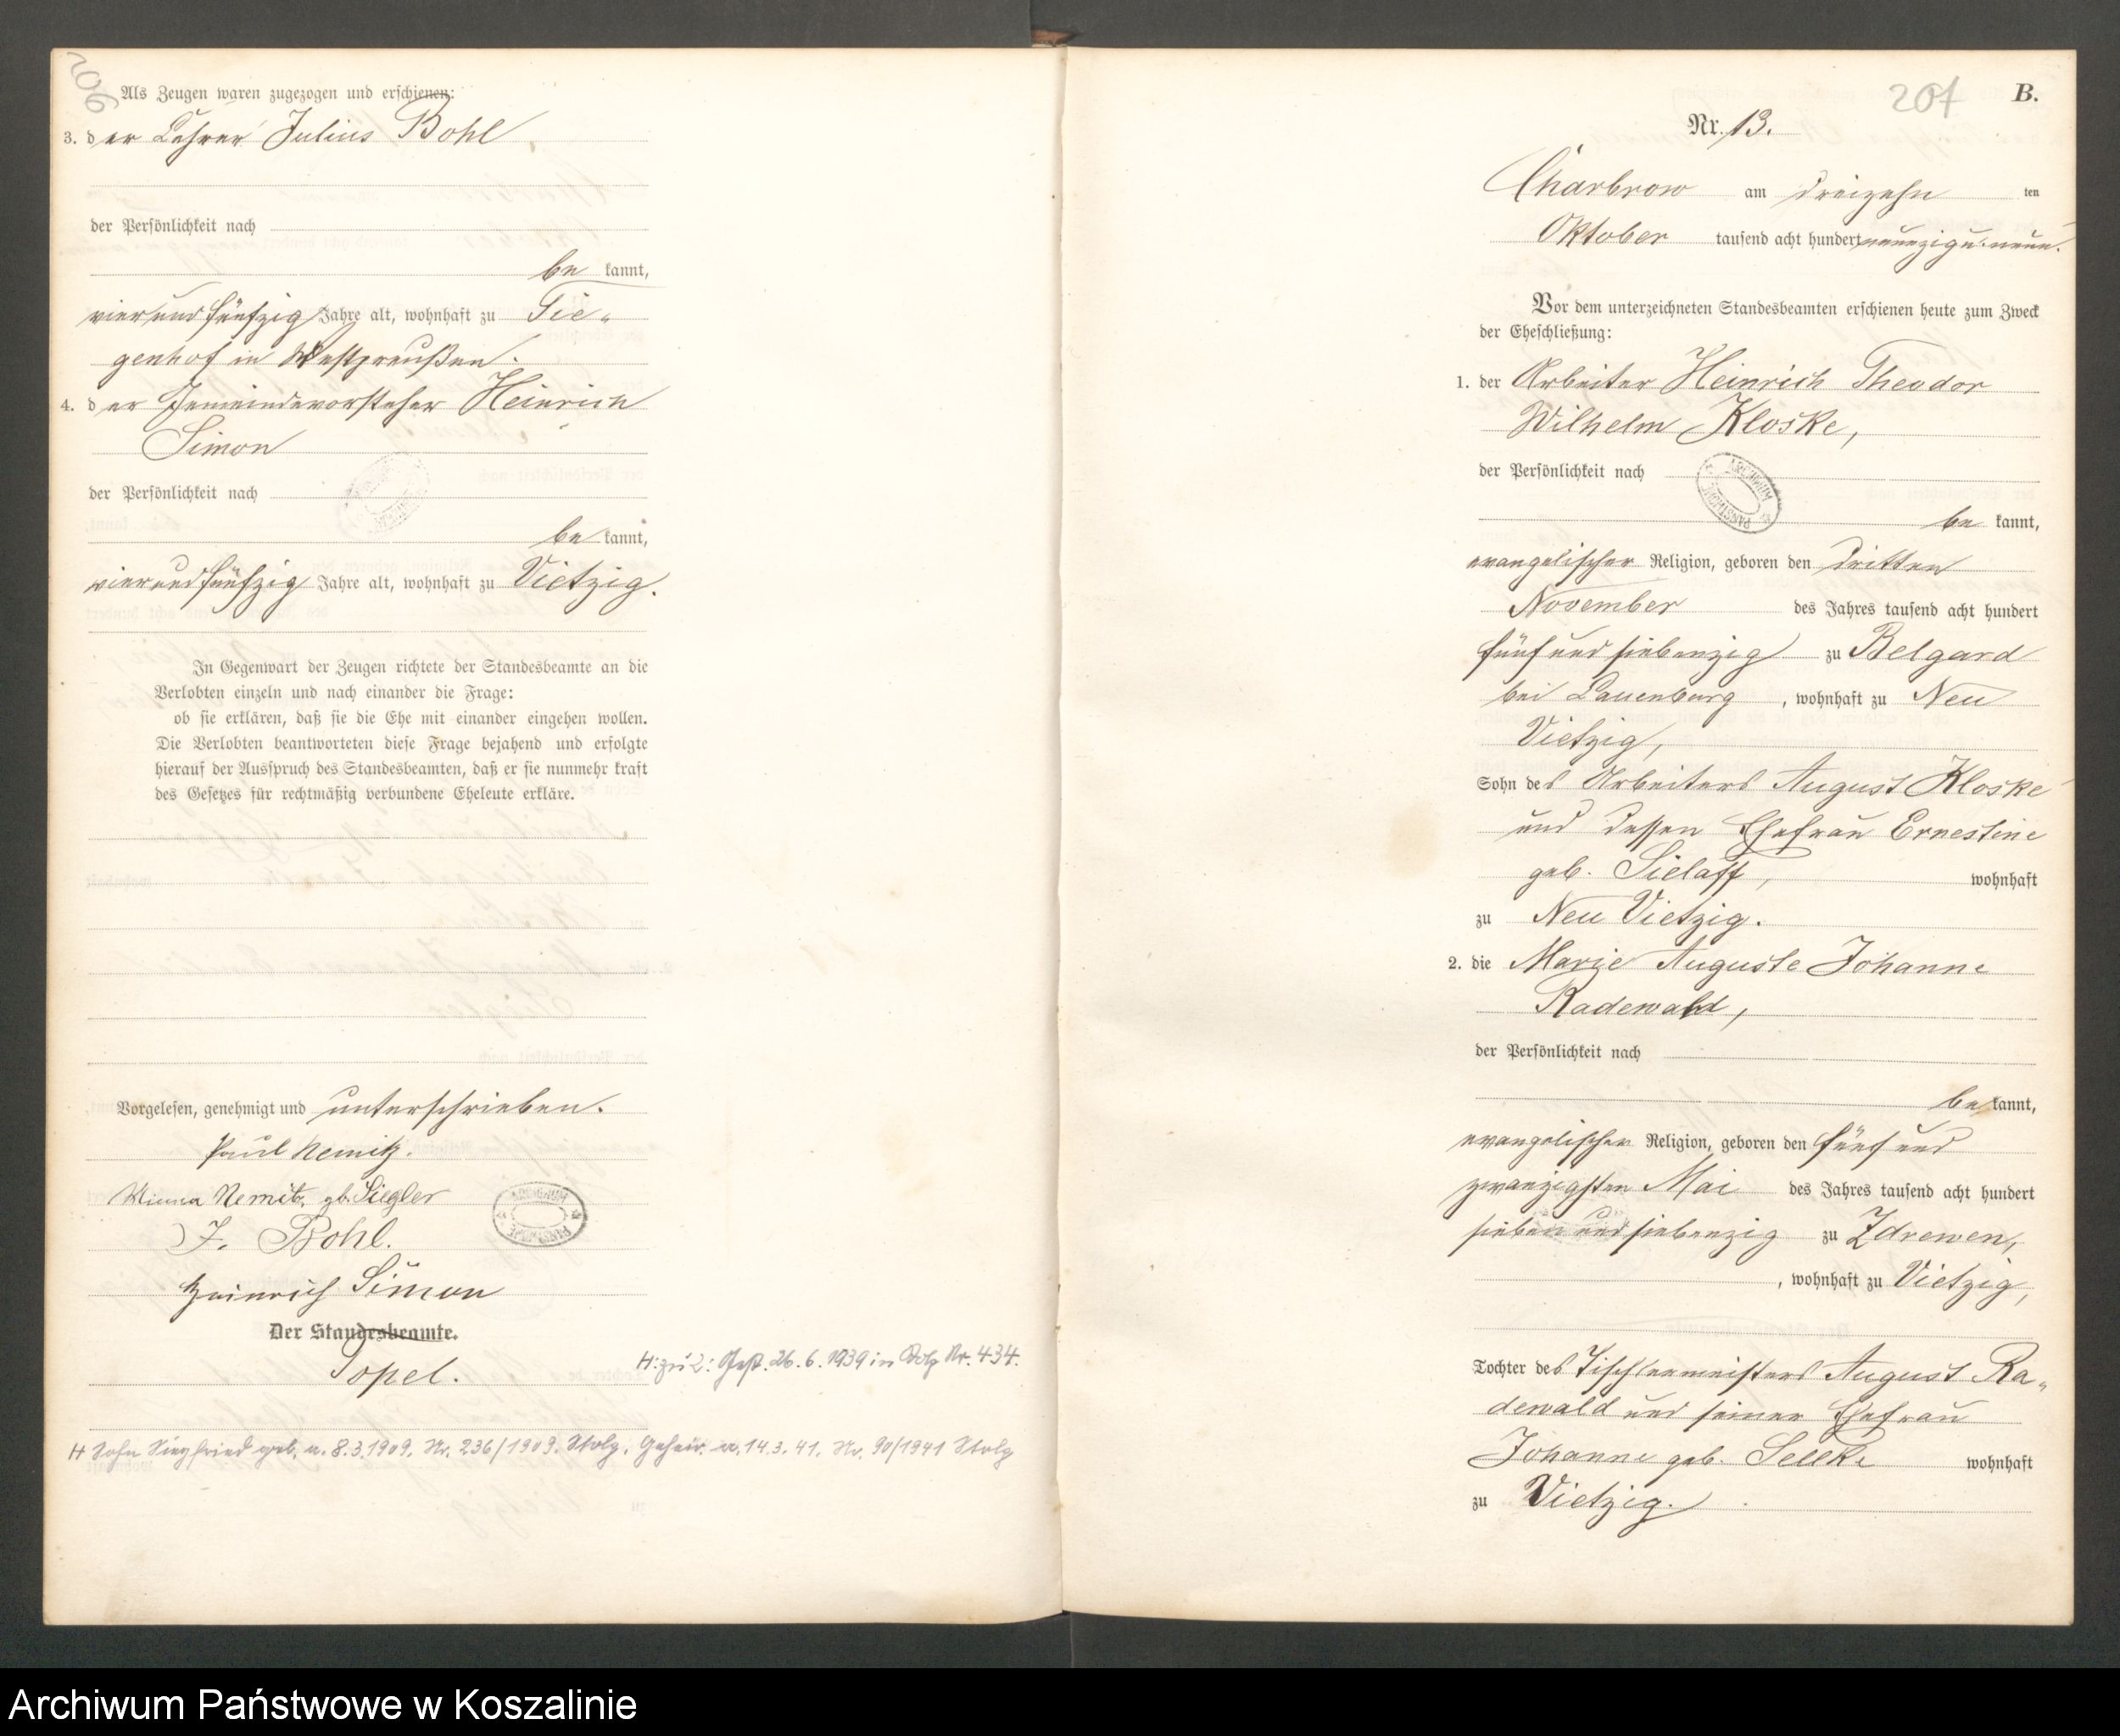 206
Als Zeugen waren zugezogen und erschienen:
3. der Lehrer Julius Bohl
der Persönlichkeit nach
be kannt,
vier und fünfzig Jahre alt, wohnhaft zu Tie-
genhof in Westpreußen.
4. der Gemeindevorsteher Heinrich
Simon
der Persönlichkeit nach
be kannt,
vier und fünfzig Jahre alt, wohnhaft zu Vietzig.
In Gegenwart der Zeugen richtete der Standesbeamte an die
Verlobten einzeln und nach einander die Frage:
ob sie erklären, daß sie die Ehe mit einander eingehen wollen.
Die Verlobten beantworteten diese Frage bejahend und erfolgte
hierauf der Ausspruch des Standesbeamten, daß er sie nunmehr kraft
des Gesetzes für rechtmäßig verbundene Eheleute erkläre.
Vorgelesen, genehmigt und unterschrieben.
Paul Nemitz.
Minna Nemitz gb. Siegler
J. Bohl.
Heinrich Simon
Der Standesbeamte.
Popel.
H: zu 2: Gest. 26.6.1939 in Stolp Nr. 434.
H Sohn Siegfried geb. a. 8.3.1909. Nr. 236/1909. Stolp. Geheir. a. 14.3.41. Nr. 90/1941 Stolp
207
B.
Nr. 13.
Charbrow am dreizehn ten
Oktober tausend acht hundert neunzig u. neun.
Vor dem unterzeichneten Standesbeamten erschienen heute zum Zweck
der Eheschließung:
1. der Arbeiter Heinrich Theodor
Wilhelm Kloske,
der Persönlichkeit nach
ARCHIWUM PAŃSTWOWE
be kannt,
evangelischer Religion, geboren den dritten
November des Jahres tausend acht hundert
fünf und siebenzig zu Belgard
bei Lauenburg, wohnhaft zu Neu
Vietzig,
Sohn des Arbeiters August Kloske
und dessen Ehefrau Ernestine
geb. Sielaff, wohnhaft
zu Neu Vietzig.
2. die Marie Auguste Johanne
Radewald,
der Persönlichkeit nach
be kannt,
evangelischer Religion, geboren den fünf und
zwanzigsten Mai des Jahres tausend acht hundert
sieben und siebenzig zu Zdrewen,
, wohnhaft zu Vietzig,
Tochter des Tischlermeisters August Ra-
dewald und seiner Ehefrau
Johanne geb. Sellke wohnhaft
zu Vietzig.
Archiwum Państwowe w Koszalinie